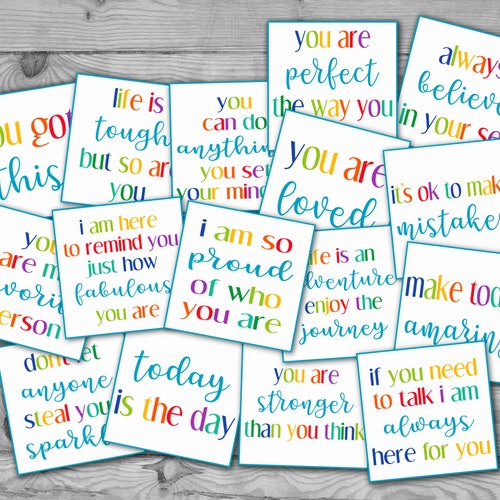 you are
perfect
the way you
always
believe
in your se
life is
tough
but so are
you
you
can do
anything
you set
your mind
ou got
this
you are
loved
it's ok to mak
mistake
you
are m
avorit
erson
i am here
to remind you
just how
fabulous
you are
i am so
proud
of who
you are
life is an
adventure
enjoy the
journey
make tod
amazin
don't let
anyone
steal you
sparkl
today
is the day
you are
stronger
than you think
if you need
to talk i am
always
here for you